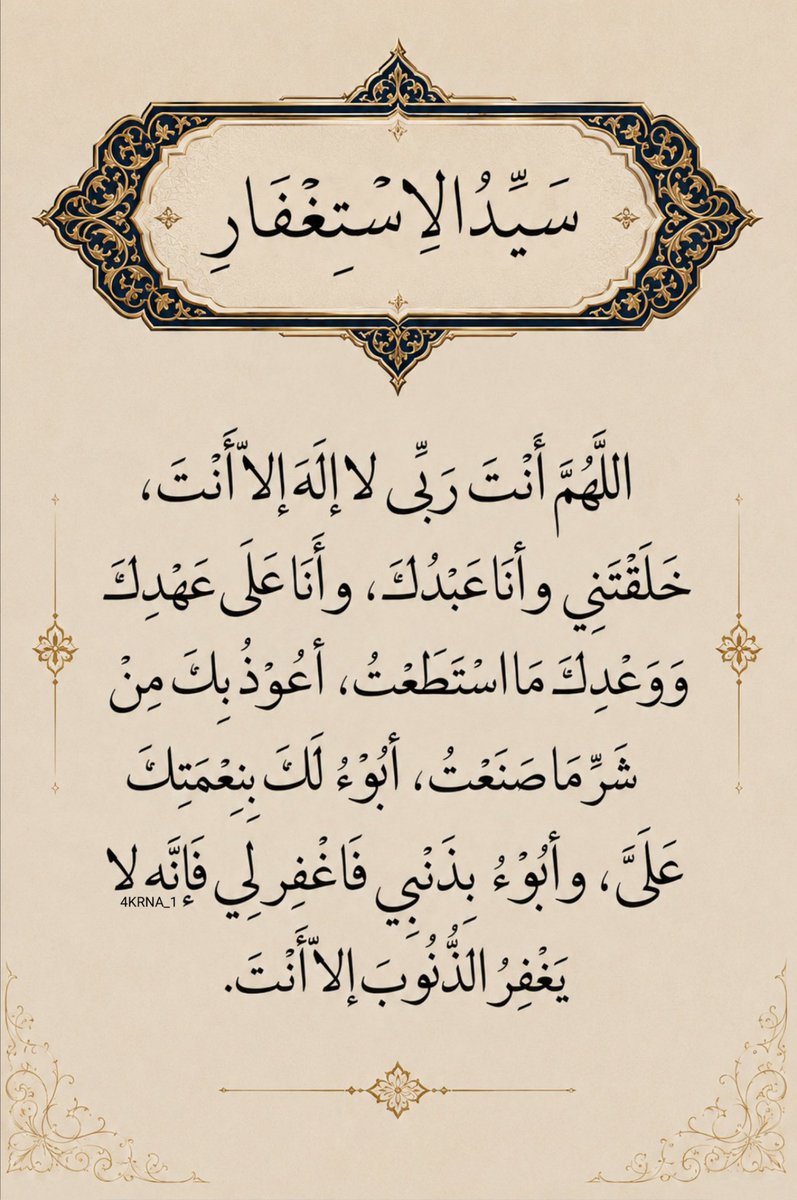 سَيِّدُ الِاسْتِغْفَارِ
اللَّهُمَّ أَنْتَ رَبِّى لا إلَهَ إلاّ أَنْتَ،
خَلَقْتَنِي وأنَا عَبْدُكَ، وأَنَا عَلَى عَهْدِكَ
وَوَعْدِكَ مَا اسْتَطَعْتُ، أعُوْذُ بِكَ مِنْ
شَرِّ مَا صَنَعْتُ، أبُوْءُ لَكَ بِنِعْمَتِكَ
عَلَىَّ، وأبُوْءُ بِذَنْبِي فَاغْفِر لِي فَإنَّه لا
4KRNA_1
يَغْفِرُ الذُّنُوبَ إلاّ أَنْتَ.